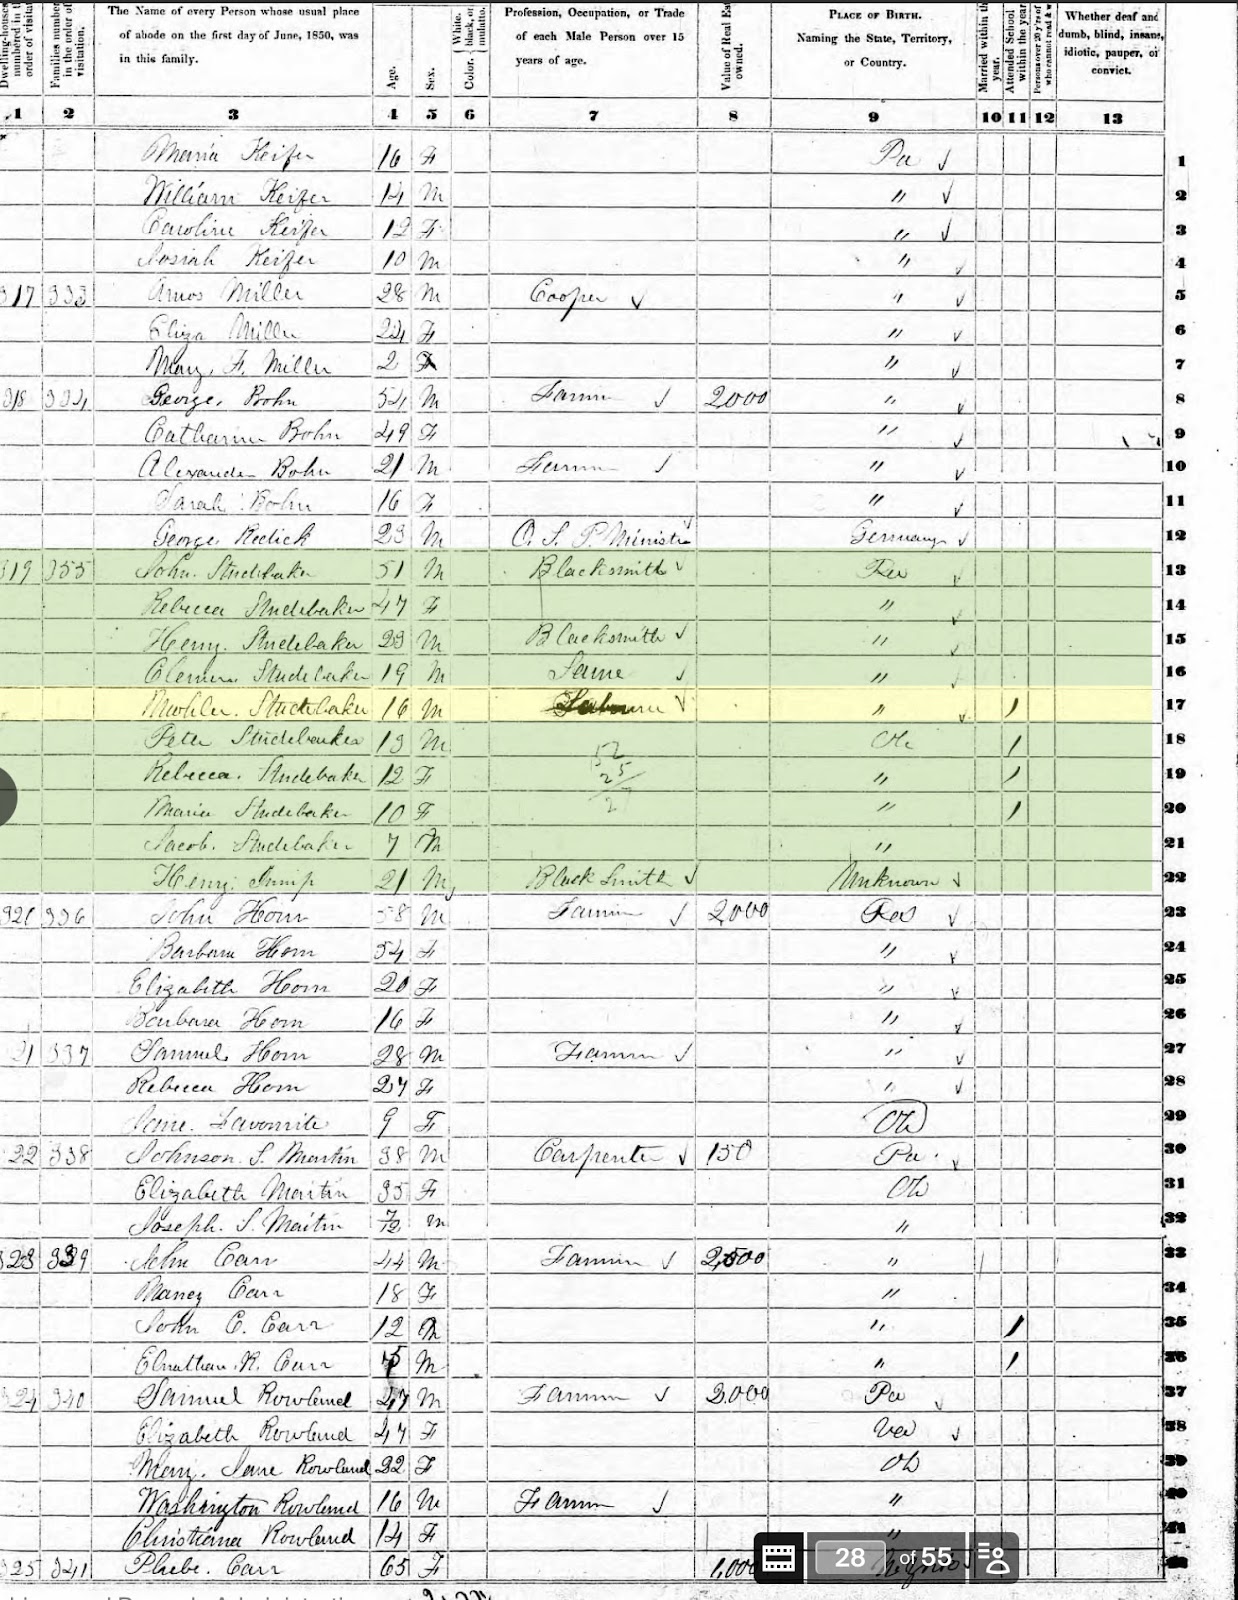 Dwelling-houses numbered in the order of visitation.
Families numbered in the order of visitation.
The Name of every Person whose usual place of abode on the first day of June, 1850, was in this family.
Age.
Sex.
Color. White, black, or mulatto.
Profession, Occupation, or Trade of each Male Person over 15 years of age.
Value of Real Est owned.
PLACE OF BIRTH. Naming the State, Territory, or Country.
Married within the year.
Attended School within the year.
Persons over 20 y'rs of who cannot read & w
Whether deaf and dumb, blind, insane, idiotic, pauper, or convict.
1 2 3 4 5 6 7 8 9 10 11 12 13
Maria Keifer 16 F Pa ✓ 1
William Keifer 14 M " ✓ 2
Caroline Keifer 12 F " ✓ 3
Josiah Keifer 10 M " ✓ 4
317 333 Amos Miller 28 M Cooper ✓ " ✓ 5
Eliza Miller 24 F " ✓ 6
Mary F. Miller 2 F " ✓ 7
318 334 George Bohn 54 M Farmer ✓ 2000 " ✓ 8
Catharine Bohn 49 F " ✓ 9
Alexander Bohn 21 M Farmer ✓ " ✓ 10
Sarah Bohn 16 F " ✓ 11
George Redick 23 M O. S. P. Ministr ✓ Germany ✓ 12
319 335 John Studebaker 51 M Blacksmith ✓ Pa ✓ 13
Rebecca Studebaker 47 F " ✓ 14
Henry Studebaker 23 M Blacksmith ✓ " ✓ 15
Clemm Studebaker 19 M Same ✓ " 16
Mohler Studebaker 16 M ✓ " ✓ / 17
Peter Studebaker 13 M Oh / 18
52
Rebecca Studebaker 12 F " / 19
25
Maria Studebaker 10 F " / 20
27
Jacob Studebaker 7 M " 21
Henry 21 M Black Smith ✓ Unknown ✓ 22
320 336 John Horn 58 M Farmer ✓ 2,000 Pa ✓ 23
Barbara Horn 54 F " ✓ 24
Elizabeth Horn 20 F " ✓ 25
Barbara Horn 16 F " ✓ 26
21 337 Samuel Horn 28 M Farmer ✓ " ✓ 27
Rebecca Horn 27 F " ✓ 28
Jane Favorite 9 F Oh 29
22 338 Johnson S. Martin 38 M Carpenter ✓ 150 Pa ✓ 30
Elizabeth Martin 35 F Oh 31
Joseph S. Martin 7/12 M " 32
323 339 John Carr 44 M Farmer ✓ 2,500 " 33
Nancy Carr 18 F " 34
John C. Carr 12 M " / 35
Elnathan R. Carr M " / 36
324 340 Samuel Rowland 47 M Farmer ✓ 2,000 Pa ✓ 37
Elizabeth Rowland 47 F Va ✓ 38
Mary Jane Rowland 22 F Oh 39
Washington Rowland 16 M Farmer ✓ " 40
Christiana Rowland 14 F " 41
325 341 Phebe Carr 65 F 1,000
28 of 55